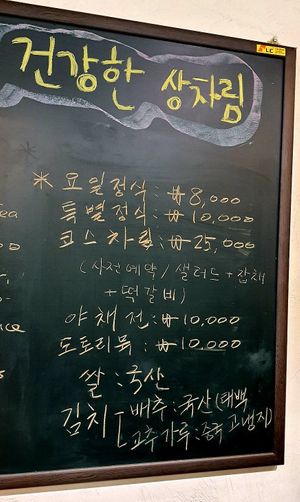 건강한 상차림
LC
※ 요일정식 : ₩ 8,000
특별정식 : ₩ 10,000
코스차림 : ₩ 25,000
(사전예약 / 샐러드 + 잡채
+ 떡갈비)
야채전 : ₩ 10,000
도토리묵 : ₩ 10,000
쌀 : 국산
김치 - 배추 : 국산 (태백
고추가루 : 중국 고냉지)